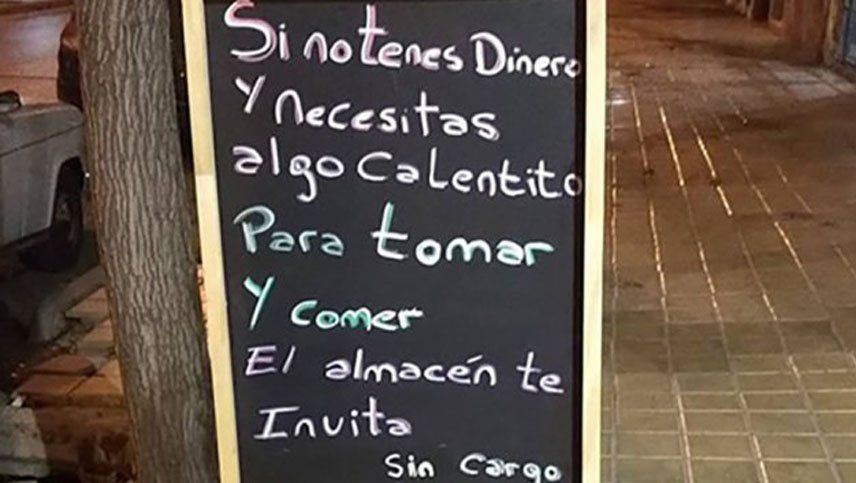 Si no tenes Dinero
Y necesitas
algo Calentito
Para tomar
Y comer
El almacén te
Invita
Sin Cargo